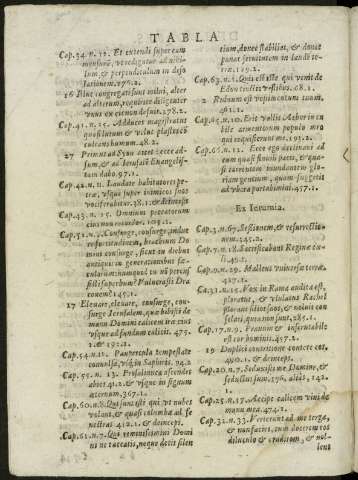 TABLA
Cap.34.n.11. Et extendi super eam
mensurā, ut redigatur ad nihi-
lum, & perpendiculum in deso
lationem.276.2.
16 Illuc congregati sunt milvi, alter
ad alterum, requirite diligenter
unus ex eis non defuit.378.2.
Cap.41.n.25. Adducet magistratus
quasi lutum & velut plastes cō
culcans humum.48.2.
27 Primus ad Syon dicet Ecce ad-
sum, & ad Ierusalē Evangelis-
tam dabo.97.1.
Cap.42.n.11. Laudate habitatores pe-
træ, usque super inimicos suos
vociferabitur.38.1. & deinceps
Cap.43. n. 15. Omnium peccatorum
tuorum non recordabor.109.1.
Cap.51.n.9. Consurge, consurge, indue
te fortitudinem, brachium Do
mini consurge, sicut in diebus
antiquis in generationibus sæ-
culorum: nunquid tu nō percus
sisti superbum? Vulnerasti Dra
conem? 145.1.
17 Elevare, elevare, consurge, con-
surge Ierusalem, quæ bibisti de
manu Domini calicem iræ eius
usque ad fundum calicis. 475.
1. & 192.2.
Cap.54.n.11. Paupercula tempestate
convulsa, vid. in Sapient.94.2.
Cap. 55. n. 13. Pro saliunca ascendet
abies 41.2. & usque in signum
æternum.367.1.
Cap.60.n.8. Qui sunt isti qui ut nubes
volant, & quasi columbæ ad fe
nestras 412.1. & deinceps.
Cap.61.n.7. Qui reminiscimini Domi
ni ne taceatis, neque detis silen
tium, donec stabiliat, & donec
ponat servitutem in laude ter-
ra.119.2.
Cap.63.n.1. Quis est iste qui venit de
Edon tinctis vestibus.68.1.
2 Rubrum est vestimentum tuum.
261.1.
Cap.65.n.10. Erit vallis Achor in cu
bile armentorum populo meo
qui requisierunt me.193.2.
Cap.66.n.12. Ecce ego declinavi ad
eum quasi fluvii pacis, & qua-
si torrentem inundantem glo-
riam gentium, quam suggetis
ad ubera portabimini.457.1.
Ex Ieremia.
Cap.3.n.67. Sessionem, & resurrectio-
nem.245.2.
Cap.7.n.18. Sacrificabant Reginæ cæ
li.45.2.
Cap.9.n.29. Malleus universæ terræ.
427.1.
Cap.31.n.15. Vox in Rama audita est,
ploratus, & ululatus Rachel
plorans filios suos, & noluit con
solari, quia non sunt.285.1.
Cap.17.n.9. Pravum & inscrutabile
est cor hominis.457.1.
19 Duplici contritione contere eos.
490.1. & deinceps.
Cap.20.n.7. Seduxisti me Domine, &
seductus sum.576, alias, 142.
1.
Cap.25.n.17. Accepi calicem vini de
manu mea.474.2.
Cap.32.n.33. Verterunt ad me terga,
& non facies, cum docerem eos
diluculo & erudirem, & nol-
lent